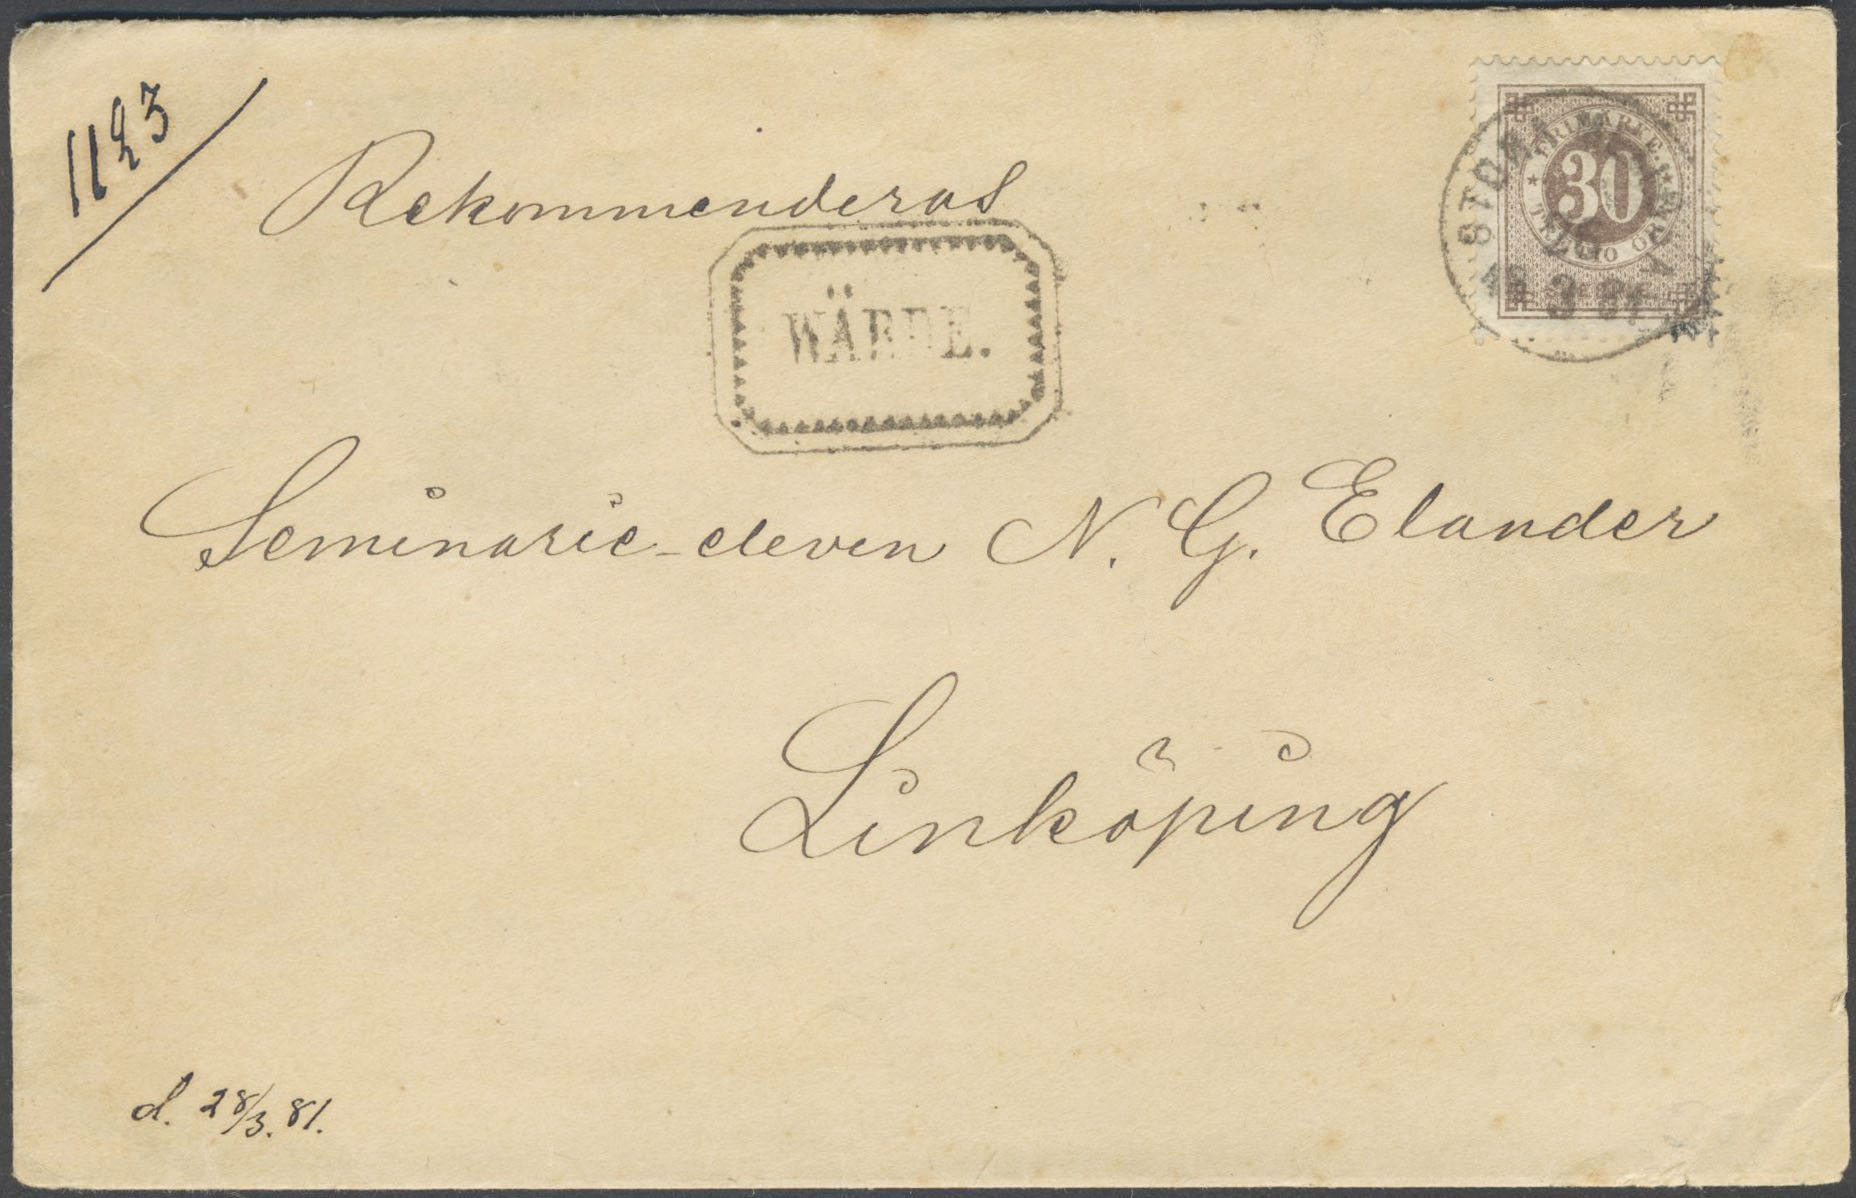 1123
Rekommenderas
WÄRDE.
FRIMÄRKE.
30
TRETTIO ÖRE
Seminarie-eleven N. G. Elander
Linköping
d. 28/3. 81.